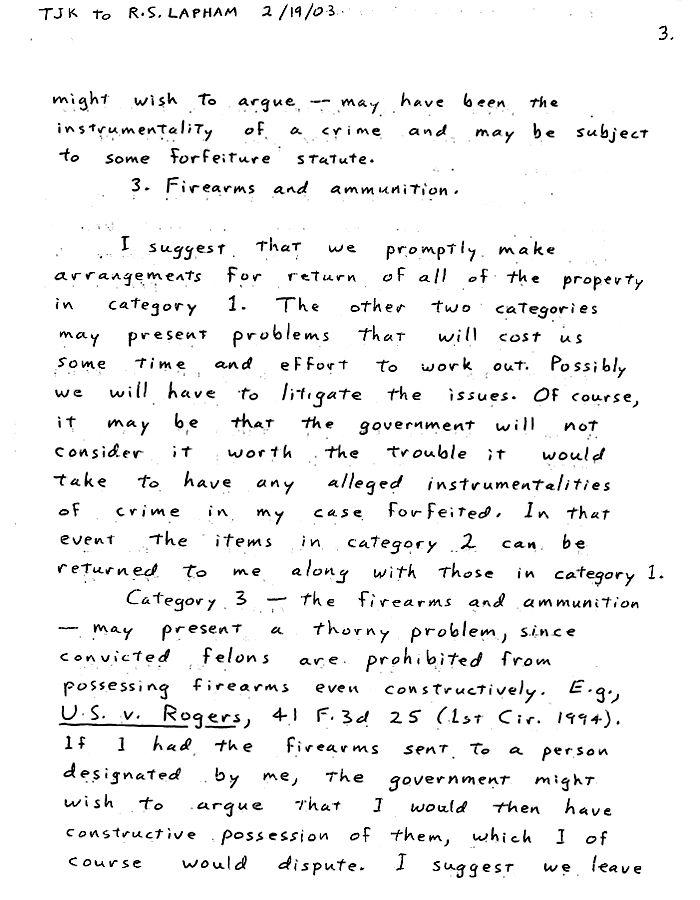 TJK to R.S. LAPHAM 2/19/03
3.
might wish to argue — may have been the
instrumentality of a crime and may be subject
to some forfeiture statute.
3. Firearms and ammunition.
I suggest that we promptly make
arrangements for return of all of the property
in category 1. The other two categories
may present problems that will cost us
some time and effort to work out. Possibly
we will have to litigate the issues. Of course,
it may be that the government will not
consider it worth the trouble it would
take to have any alleged instrumentalities
of crime in my case forfeited. In that
event the items in category 2 can be
returned to me along with those in category 1.
Category 3 — the firearms and ammunition
— may present a thorny problem, since
convicted felons are prohibited from
possessing firearms even constructively. E.g.,
U.S. v. Rogers, 41 F.3d 25 (1st Cir. 1994).
If I had the firearms sent to a person
designated by me, the government might
wish to argue that I would then have
constructive possession of them, which I of
course would dispute. I suggest we leave